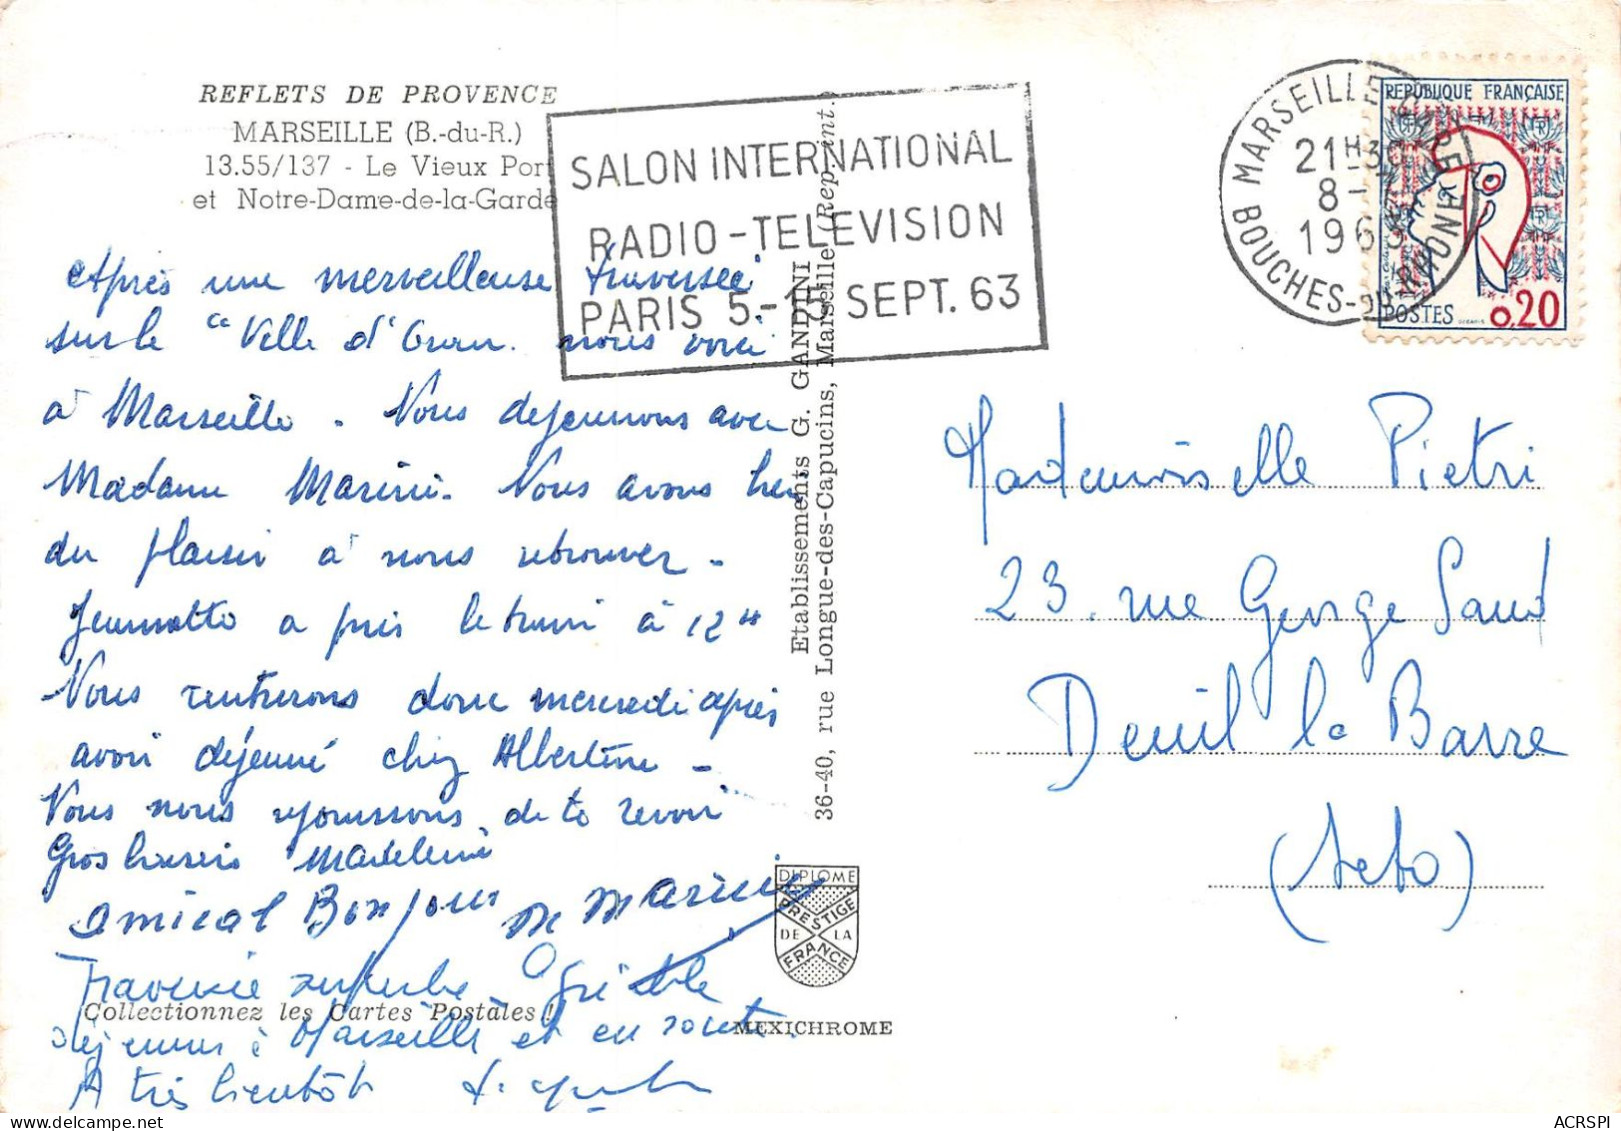 REFLETS DE PROVENCE
MARSEILLE (B.-du-R.)
13.55/137 - Le Vieux Port
et Notre-Dame-de-la-Garde
SALON INTERNATIONAL
RADIO-TELEVISION
PARIS 5-15 SEPT. 63
MARSEILLE GARE
21H30
8-
1963
BOUCHES-DU-RHONE
REPUBLIQUE FRANÇAISE
POSTES 0,20
Après une merveilleuse traversée
sur le "Ville d'Oran. nous voici
à Marseille. Nous déjeunons avec
Madame Marini. Nous avons
du plaisir à nous retrouver.
Jeannette a pris le train à 12H
Nous rentrerons donc mercredi après
avoir déjeuné chez Albertine.
Nous nous réjouissons de te revoir
Gros baisers Madeleine
amical Bonjour M Marini
Traversée superbe
déjeuner à Marseille et en route.
A très bientôt
Collectionnez les Cartes Postales !
Etablissements G. GANDINI
36-40, rue Longue-des-Capucins, Marseille (Rep. int.)
DIPLOME
PRESTIGE
DE LA
FRANCE
MEXICHROME
Mademoiselle Pietri
23. rue George Sand
Deuil la Barre
(Seto)
ACRSPI